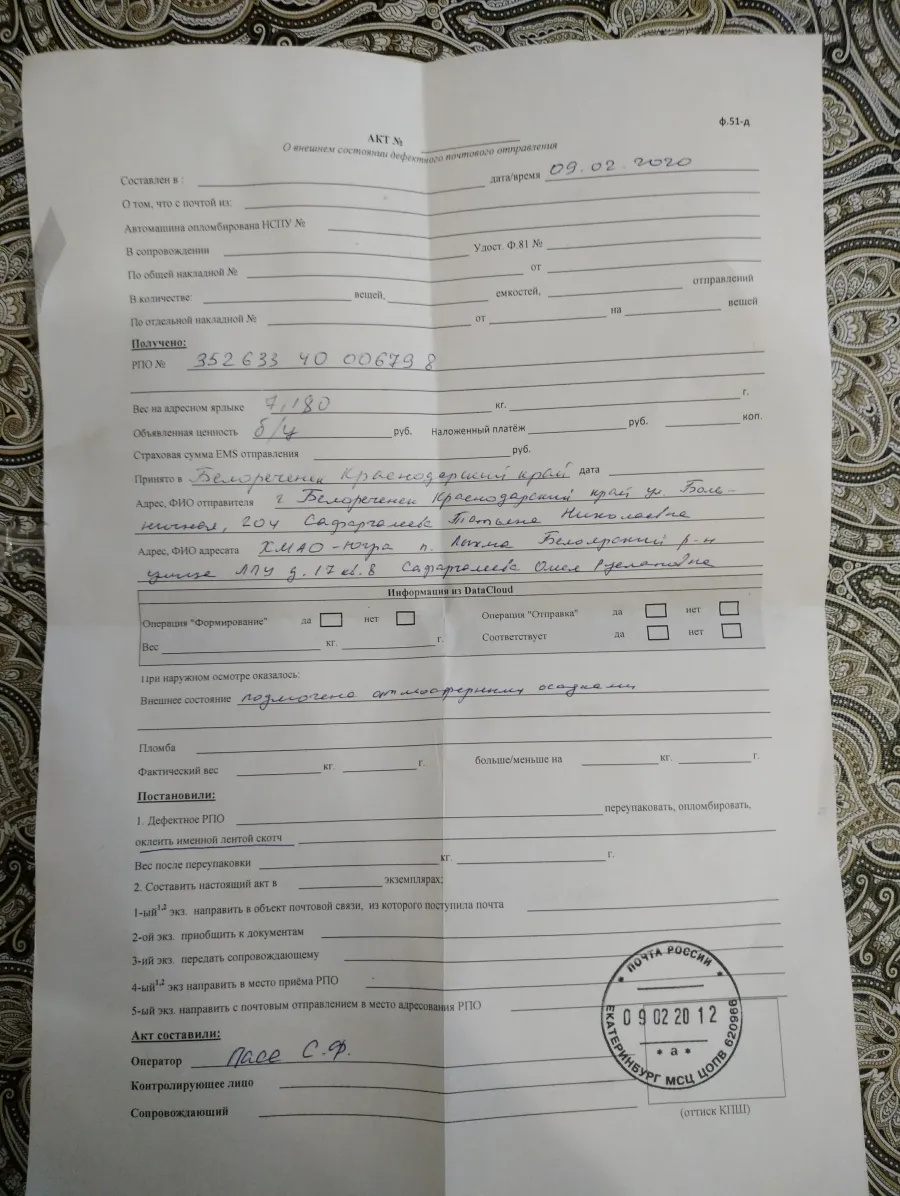 ф.51-д
АКТ №
О внешнем состоянии дефектного почтового отправления
Составлен в : дата/время 09.02.2020
О том, что с почтой из:
Автомашина опломбирована НСПУ №
В сопровождении Удост. Ф.81 №
По общей накладной № от
В количестве: вещей, емкостей, отправлений
По отдельной накладной № от на вещей
Получено:
РПО № 352633 40 00679 8
Вес на адресном ярлыке 7,180 кг. г.
Объявленная ценность б/ц руб. Наложенный платёж руб. коп.
Страховая сумма EMS отправления руб.
Принято в Белореченск Краснодарский край дата
Адрес, ФИО отправителя г Белореченск Краснодарский край ул. Боль-
ничная, 204 Сафаргалеева Татьяна Николаевна
Адрес, ФИО адресата ХМАО-Югра п. Лыхма Белоярский р-н
улица ЛПУ д.17 кв.8 Сафаргалеева
Информация из DataCloud
Операция "Формирование" да нет Операция "Отправка" да нет
Вес кг. г. Соответствует да нет
При наружном осмотре оказалось:
Внешнее состояние подмочена атмосферными осадками
Пломба
Фактический вес кг. г. больше/меньше на кг. г.
Постановили:
1. Дефектное РПО переупаковать, опломбировать,
оклеить именной лентой скотч
Вес после переупаковки кг. г.
2. Составить настоящий акт в экземплярах;
1-ый1,2 экз. направить в объект почтовой связи, из которого поступила почта
2-ой экз. приобщить к документам
3-ий экз. передать сопровождающему
4-ый1,2 экз направить в место приёма РПО
5-ый экз. направить с почтовым отправлением в место адресования РПО
Акт составили:
Оператор С.Ф.
Контролирующее лицо
Сопровождающий
ПОЧТА РОССИИ
09 02 20 12
* а *
ЕКАТЕРИНБУРГ МСЦ ЦОПВ 620966
(оттиск КПШ)